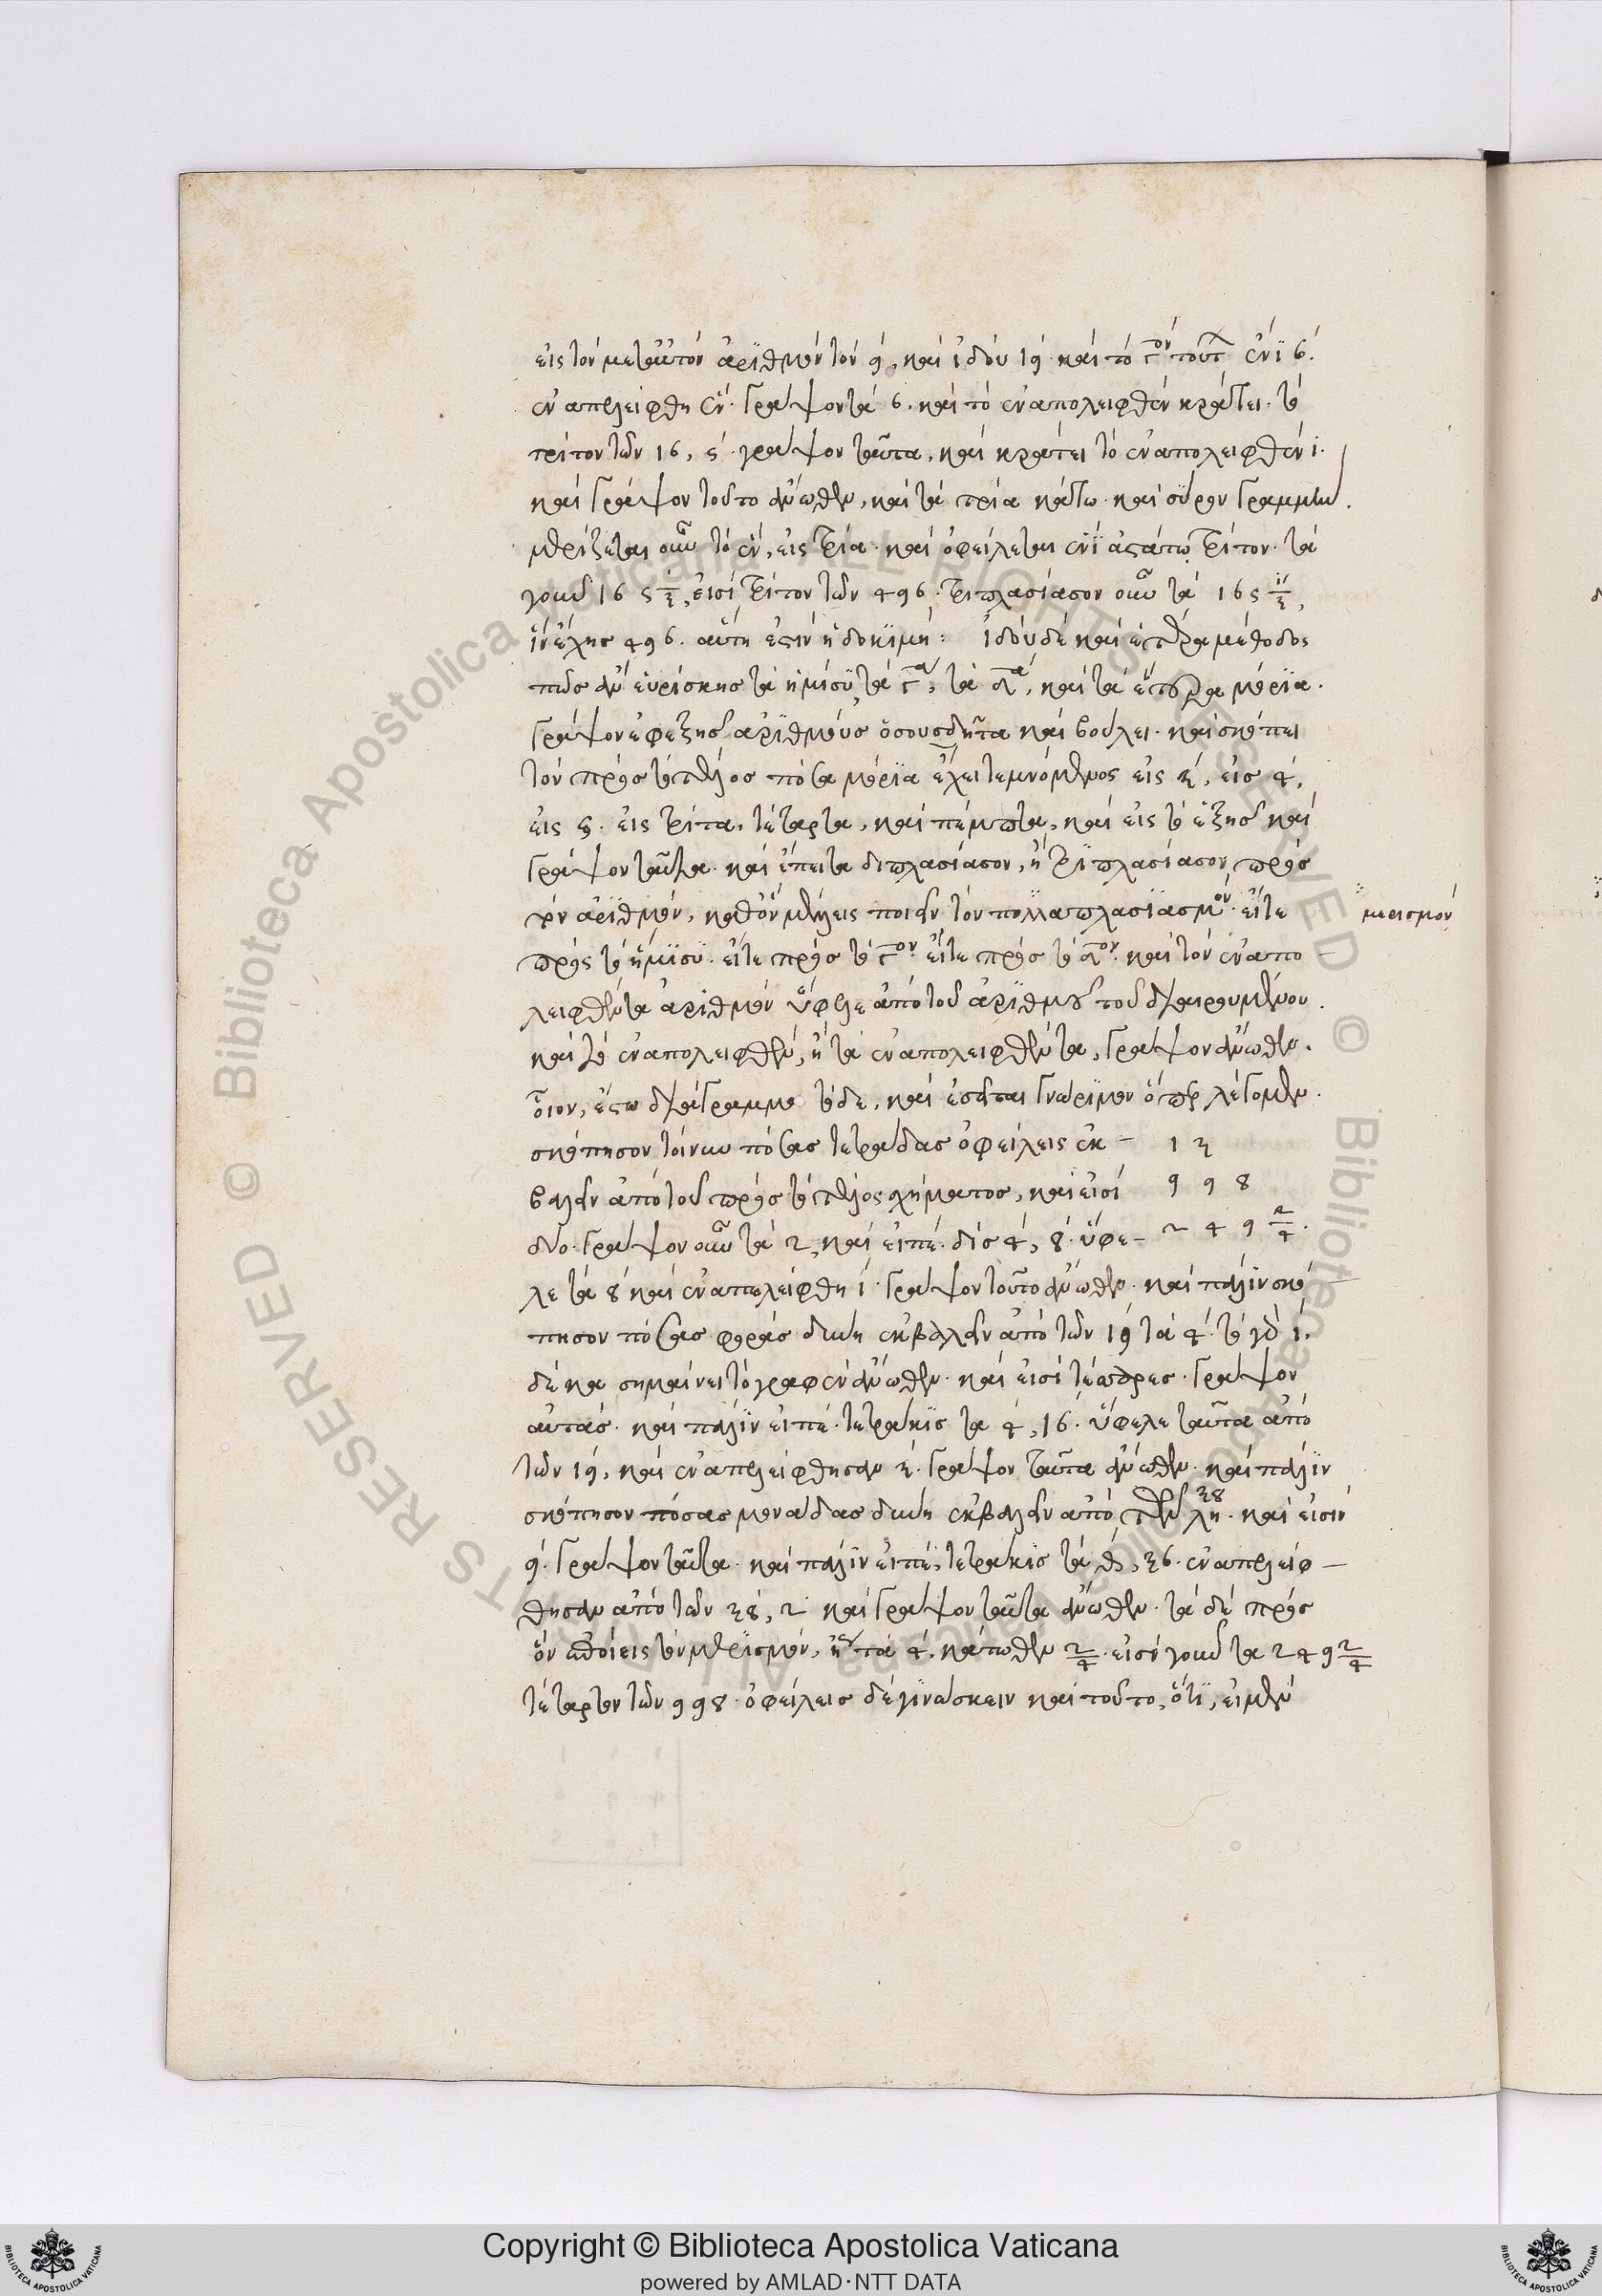 εἰς τὸν μετ' αὐτὸν ἀρϊθμὸν τὸν 9, καὶ ἰδοὺ 19· καὶ τὸ γ΄ον τούτ ἐνϊ 6.
ἐναπελείφθη ἕν· γράψον τὰ 6. καὶ τὸ ἐναπολειφθὲν κράτει. τὸ
τρίτον τῶν 16, 5· γράψον ταῦτα, καὶ κράτει τὸ ἐναπολειφθὲν 1.
καὶ γράψον τοῦτο ἄνωθεν, καὶ τὰ τρία κάτω· καὶ σῦρον γραμμήν.
μερίζεται οὖν τὸ ἓν, εἰς τρία· καὶ ὀφείλεται ἑνῒ ἑκάστῳ τρίτον· τὰ
γοῦν 16 5 1/3, εἰσὶ τρίτον τῶν 496· τριπλασίασον οὖν τὰ 165 1/3,
ἵν' ἔχῃς 496. αὕτη ἐστὶν ἡ δοκϊμή: ἰδοὺ δὲ καὶ ἑτέρα μέθοδος
πῶς ἂν εὑρίσκῃς τὰ ἡμίσϋ, τὰ γ΄α, τὰ δ΄α, καὶ τὰ ἕτερα μόρϊα.
γράψον ἐφεξῆς ἀρϊθμοὺς ὅσους δῆτα καὶ βούλει· καὶ σκόπει
τὸν πρὸς τὸ τέλος πόσα μόρϊα ἔχει τεμνόμενος εἰς 3, εἰς 4,
εἰς 5. εἰς τρίτα, τέταρτα, καὶ πέμπτα, καὶ εἰς τὸ ἑξῆς καὶ
γράψον ταῦτα· καὶ ἔπειτα διπλασίασον, ἢ τρϊπλασίασον πρὸς
τὸν ἀρϊθμὸν, καθ' ὃν μέλλεις ποιεῖν τὸν πολλαπλασϊασμὸν· εἴτε
πρὸς τὸ ἥμϊσϋ· εἴτε πρὸς τὸ γ΄ον· εἴτε πρὸς τὸ δ΄ον. καὶ τὸν ἐναπο-
λειφθέντα ἀριθμὸν ὕφελε ἀπὸ τοῦ ἀρϊθμοῦ τοῦ διαιρουμένου.
καὶ τὸ ἐναπολειφθὲν, ἢ τὰ ἐναπολειφθέντα, γράψον ἄνωθεν.
οἷον, ἔστω διάγραμμα τόδε, καὶ ἔσεται γνώρϊμον ὅπερ λέγομεν.
σκόπησον τοίνυν πόσας τετράδας ὀφείλεις ἐκ- 1 3
βαλεῖν ἀπὸ τοῦ πρὸς τὸ τέλος χήματος, καὶ εἰσὶ 9 9 8
δύο· γράψον οὖν τὰ 2, καὶ εἰπέ· δὶς 4, 8· ὕφε- 2 4 9 2/4.
λε τὰ 8 καὶ ἐναπελείφθη 1· γράψον τοῦτο ἄνωθεν· καὶ πάλϊν σκό-
πησον πόσας φορὰς δύνῃ ἐκβαλεῖν ἀπὸ τῶν 19 τὰ 4· τὸ γὰρ 1,
δέκα σημαίνει τὸ γραφὲν ἄνωθεν· καὶ εἰσὶ τέσσαρες· γράψον
αὐτάς· καὶ πάλϊν εἰπέ· τετράκϊς τὰ 4, 16· ὕφελε ταῦτα ἀπὸ
τῶν 19, καὶ ἐναπελείφθησαν 3· γράψον ταῦτα ἄνωθεν· καὶ πάλϊν
σκόπησον πόσας μονάδας δύνῃ ἐκβαλεῖν ἀπὸ τῶν λη 38· καὶ εἰσὶν
9· γράψον ταῦτα· καὶ πάλϊν εἰπέ, τετράκϊς τὰ θ, 36. ἐναπελείφ-
θησαν ἀπὸ τῶν 38, 2 καὶ γράψον ταῦτα ἄνωθεν· τὰ δὲ πρὸς
ὃν ἐποίεις τὸν μερϊσμὸν, ἤγουν τὰ 4, κάτωθεν 2/4· εἰσὶ γοῦν τὰ 249 2/4
τέταρτον τῶν 998· ὀφείλεις δὲ γϊνώσκειν καὶ τοῦτο, ὅτϊ, εἰ μὲν
μερισμόν
Copyright © Biblioteca Apostolica Vaticana
powered by AMLAD·NTT DATA